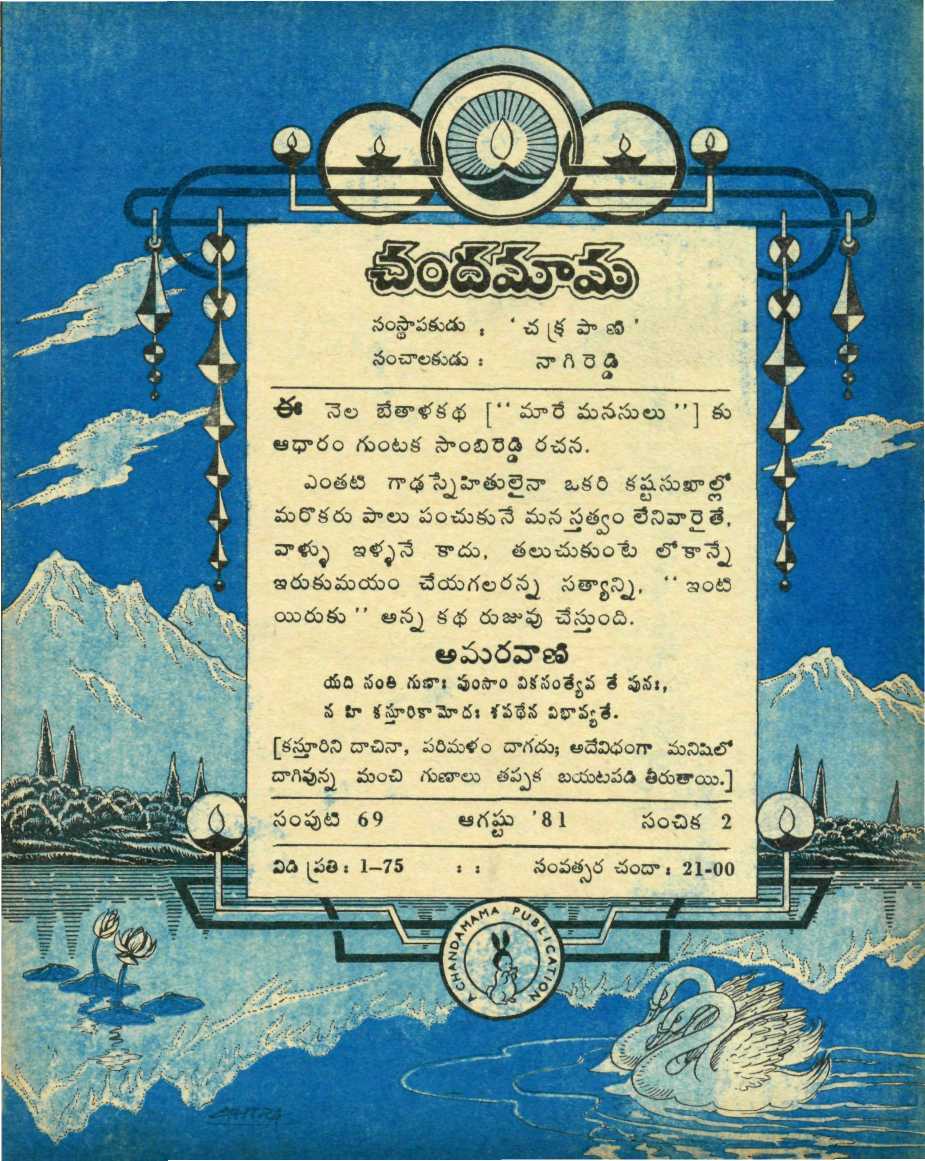 చందమామ
సంస్థాపకుడు : ' చక్రపాణి '
సంచాలకుడు : నాగిరెడ్డి
ఈ నెల బేతాళకథ [‘‘ మారే మనసులు ’’] కు
ఆధారం గుంటక సాంబిరెడ్డి రచన.
ఎంతటి గాఢస్నేహితులైనా ఒకరి కష్టసుఖాల్లో
మరొకరు పాలు పంచుకునే మన స్తత్వం లేనివారైతే,
వాళ్ళు ఇళ్ళనే కాదు, తలుచుకుంటే లోకాన్నే
ఇరుకుమయం చేయగలరన్న సత్యాన్ని, ‘‘ ఇంటి
యిరుకు ’’ అన్న కథ రుజువు చేస్తుంది.
అమరవాణి
యది సంతి గుణాః పుంసాం వికసంత్యేవ తే పునః,
న హి కస్తూరికామోదః శపథేన విభావ్యతే.
[కస్తూరిని దాచినా, పరిమళం దాగదు; అదేవిధంగా మనిషిలో
దాగివున్న మంచి గుణాలు తప్పక బయటపడి తీరుతాయి.]
సంపుటి 69 ఆగష్టు '81 సంచిక 2
విడి ప్రతి : 1–75 : : సంవత్సర చందా : 21-00
A CHANDAMAMA PUBLICATION